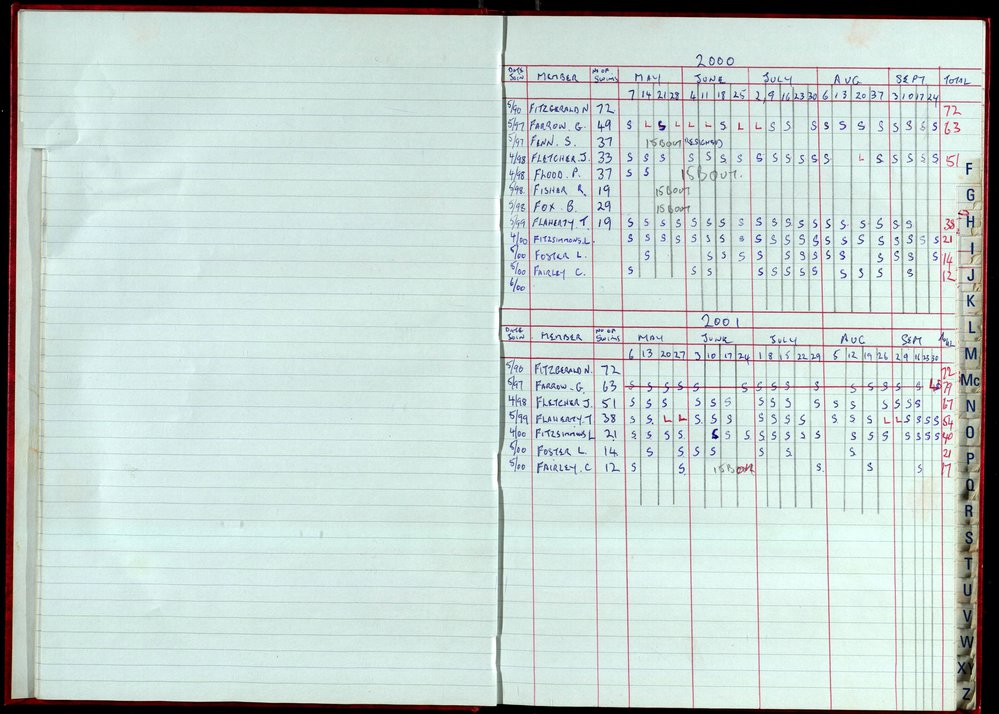 2000
DATE JOIN MEMBER NO OF SWIMS MAY JUNE JULY AUG SEPT TOTAL
7 14 21 28 4 11 18 25 2 9 16 23 30 6 13 20 37 3 10 17 24
5/90 FITZGERALD N 72 72
5/97 FARROW. G. 49 S L S L L L S L L S S S S S S S S S S S 63
5/97 FENN. S. 37 15BOUT RESIGNED
4/98 FLETCHER. J. 33 S S S S S S S S S S S S S L S S S S S 51
4/98 FLOOD. P. 37 S S 15BOUT.
5/98. FISHER R. 19 15BOUT
5/98 FOX. B. 29 15BOUT
5/99 FLAHERTY. T. 19 S S S S S S S S S S S S S S S S S S S 38
4/00 FITZSIMMONS. L. S S S S S S S S S S S S S S S S S S S S S 21
5/00 FOSTER L. S S S S S S S S S S S S S S 14
5/00 FAIRLEY C. S S S S S S S S S S S S 12
6/00
2001
DATE JOIN MEMBER NO OF SWIMS MAY JUNE JULY AUG SEPT
6 13 20 27 3 10 17 24 1 8 15 22 29 5 12 19 26 2 9 16 23 30
5/90 FITZGERALD N. 72 72
5/97 FARROW. G. 63 S S S S S S S S S S S S S S S S 79
4/98 FLETCHER J. 51 S S S S S S S S S S S S S S S S 67
5/99 FLAHERTY. T 38 S S L L S S S S S S S S S S L L S S S S 54
4/00 FITZSIMMONS L 21 S S S S S S S S S S S S S S S S S S S 40
5/00 FOSTER L. 14 S S S S S S S 21
5/00 FAIRLEY. C 12 S S 15BOUT S S S 17
F
G
H
I
J
K
L
M
Mc
N
O
P
Q
R
S
T
U
V
W
XY
Z